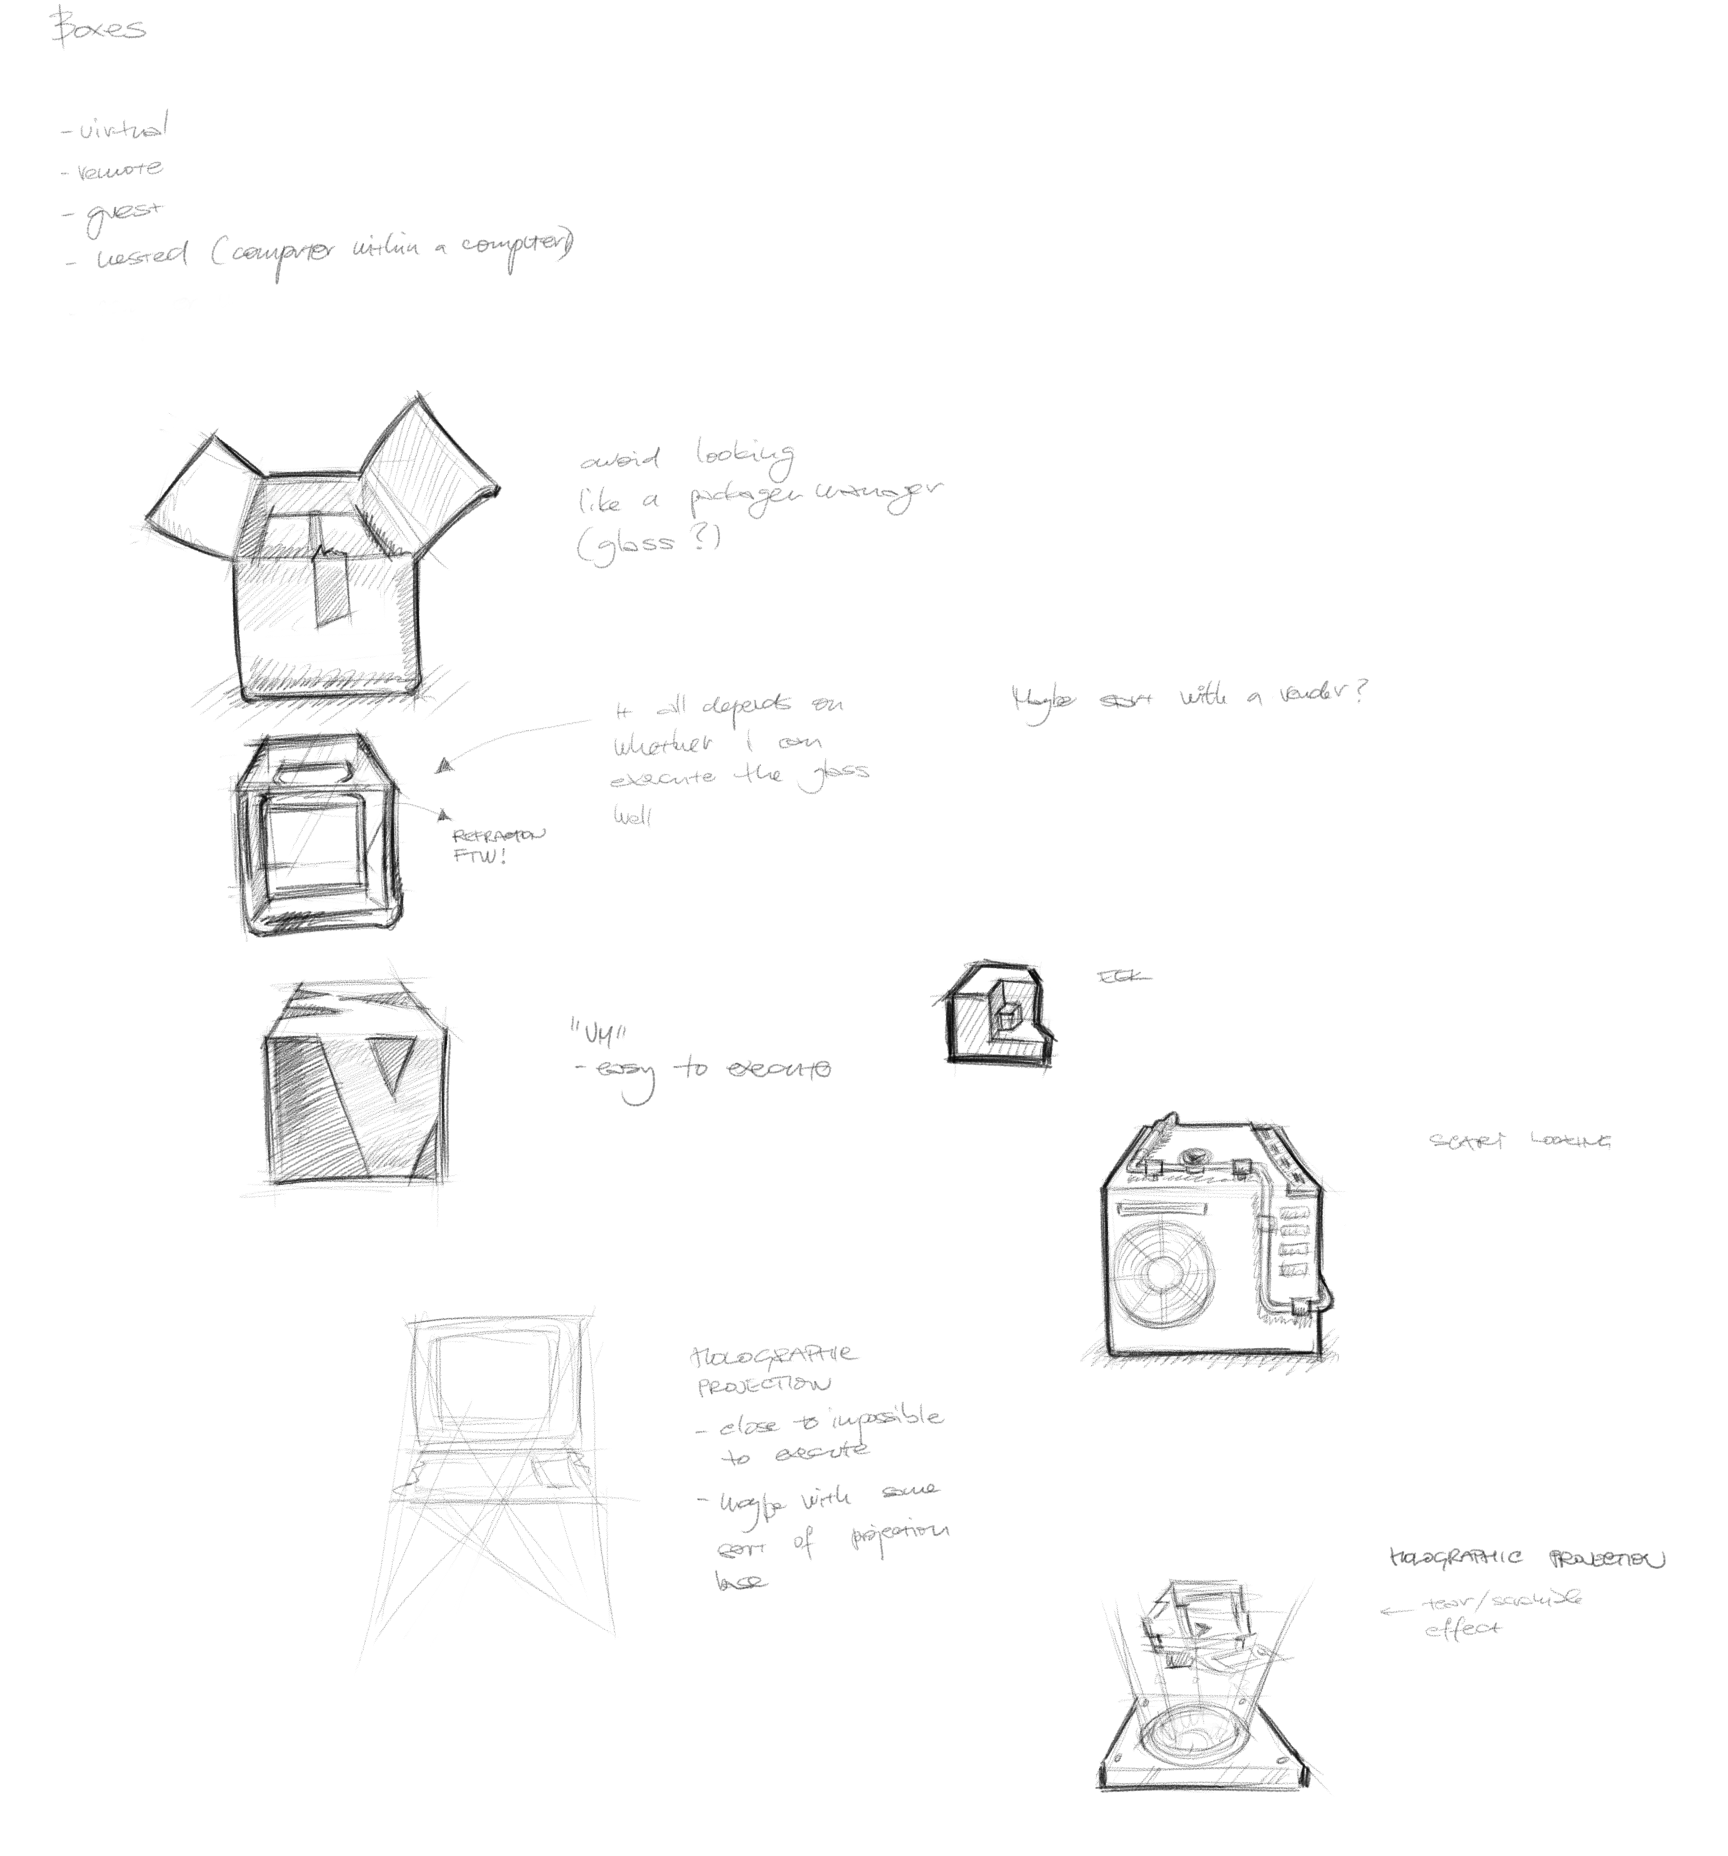 Boxes
- virtual
- remote
- guest
- nested (computer within a computer)
avoid looking
like a packagen manager
(glass?)
It all depends on
whether I can
execute the glass
well
Maybe start with a render?
REFRACTION
FTW!
EEK
"VM"
- easy to execute
SCARY LOOKING
HOLOGRAPHIC
PROJECTION
- close to impossible
to execute
- maybe with some
sort of projection
base
HOLOGRAPHIC PROJECTION
← tear/scramble
effect